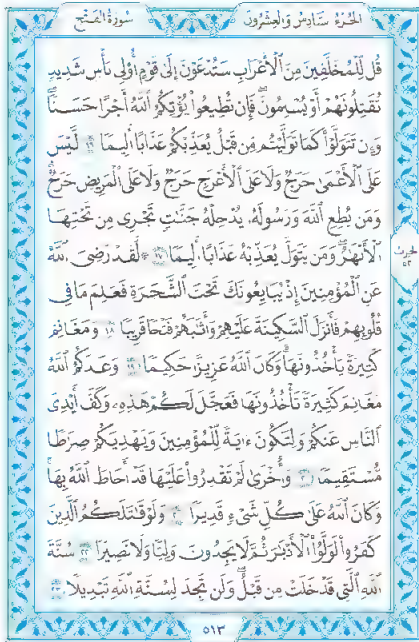 الجزء سادس والعشرون
سورة الفتح
قُل لِّلْمُخَلَّفِينَ مِنَ الْأَعْرَابِ سَتُدْعَوْنَ إِلَىٰ قَوْمٍ أُولِي بَأْسٍ شَدِيدٍ
تُقَاتِلُونَهُمْ أَوْ يُسْلِمُونَ ۖ فَإِن تُطِيعُوا يُؤْتِكُمُ اللَّهُ أَجْرًا حَسَنًا ۖ
وَإِن تَتَوَلَّوْا كَمَا تَوَلَّيْتُم مِّن قَبْلُ يُعَذِّبْكُمْ عَذَابًا أَلِيمًا ١٦ لَّيْسَ
عَلَى الْأَعْمَىٰ حَرَجٌ وَلَا عَلَى الْأَعْرَجِ حَرَجٌ وَلَا عَلَى الْمَرِيضِ حَرَجٌ ۗ
وَمَن يُطِعِ اللَّهَ وَرَسُولَهُ يُدْخِلْهُ جَنَّٰتٍ تَجْرِي مِن تَحْتِهَا
الْأَنْهَٰرُ ۖ وَمَن يَتَوَلَّ يُعَذِّبْهُ عَذَابًا أَلِيمًا ١٧ لَّقَدْ رَضِيَ اللَّهُ
عَنِ الْمُؤْمِنِينَ إِذْ يُبَايِعُونَكَ تَحْتَ الشَّجَرَةِ فَعَلِمَ مَا فِي
قُلُوبِهِمْ فَأَنزَلَ السَّكِينَةَ عَلَيْهِمْ وَأَثَٰبَهُمْ فَتْحًا قَرِيبًا ١٨ وَمَغَانِمَ
كَثِيرَةً يَأْخُذُونَهَا ۗ وَكَانَ اللَّهُ عَزِيزًا حَكِيمًا ١٩ وَعَدَكُمُ اللَّهُ
مَغَانِمَ كَثِيرَةً تَأْخُذُونَهَا فَعَجَّلَ لَكُمْ هَٰذِهِ وَكَفَّ أَيْدِيَ
النَّاسِ عَنكُمْ وَلِتَكُونَ ءَايَةً لِّلْمُؤْمِنِينَ وَيَهْدِيَكُمْ صِرَٰطًا
مُّسْتَقِيمًا ٢٠ وَأُخْرَىٰ لَمْ تَقْدِرُوا عَلَيْهَا قَدْ أَحَاطَ اللَّهُ بِهَا ۚ
وَكَانَ اللَّهُ عَلَىٰ كُلِّ شَيْءٍ قَدِيرًا ٢١ وَلَوْ قَٰتَلَكُمُ الَّذِينَ
كَفَرُوا لَوَلَّوُا الْأَدْبَٰرَ ثُمَّ لَا يَجِدُونَ وَلِيًّا وَلَا نَصِيرًا ٢٢ سُنَّةَ
اللَّهِ الَّتِي قَدْ خَلَتْ مِن قَبْلُ ۖ وَلَن تَجِدَ لِسُنَّةِ اللَّهِ تَبْدِيلًا ٢٣
٥١٣